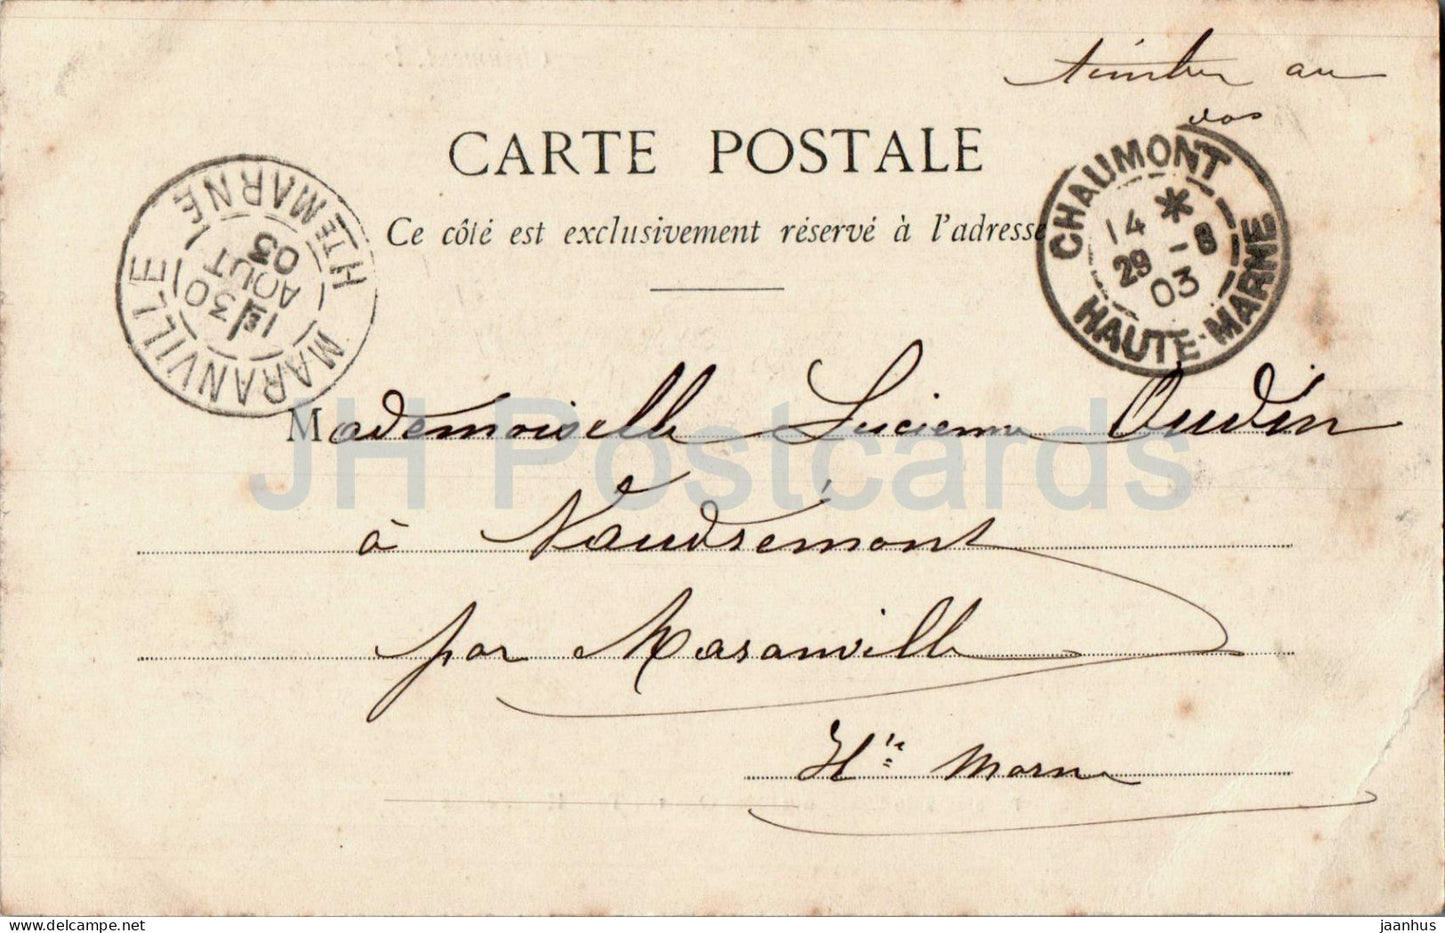 timbre au
dos
CARTE POSTALE
Ce côté est exclusivement réservé à l'adresse
CHAUMONT
14 * 
29 - 8
03
HAUTE-MARNE
MARANVILLE
30
AOUT
03
HTE MARNE
Mademoiselle Lucienne Oudin
à Vaudrémont
par Maranville
Hte Marne
JH Postcards
delcampe.net
jaanhus